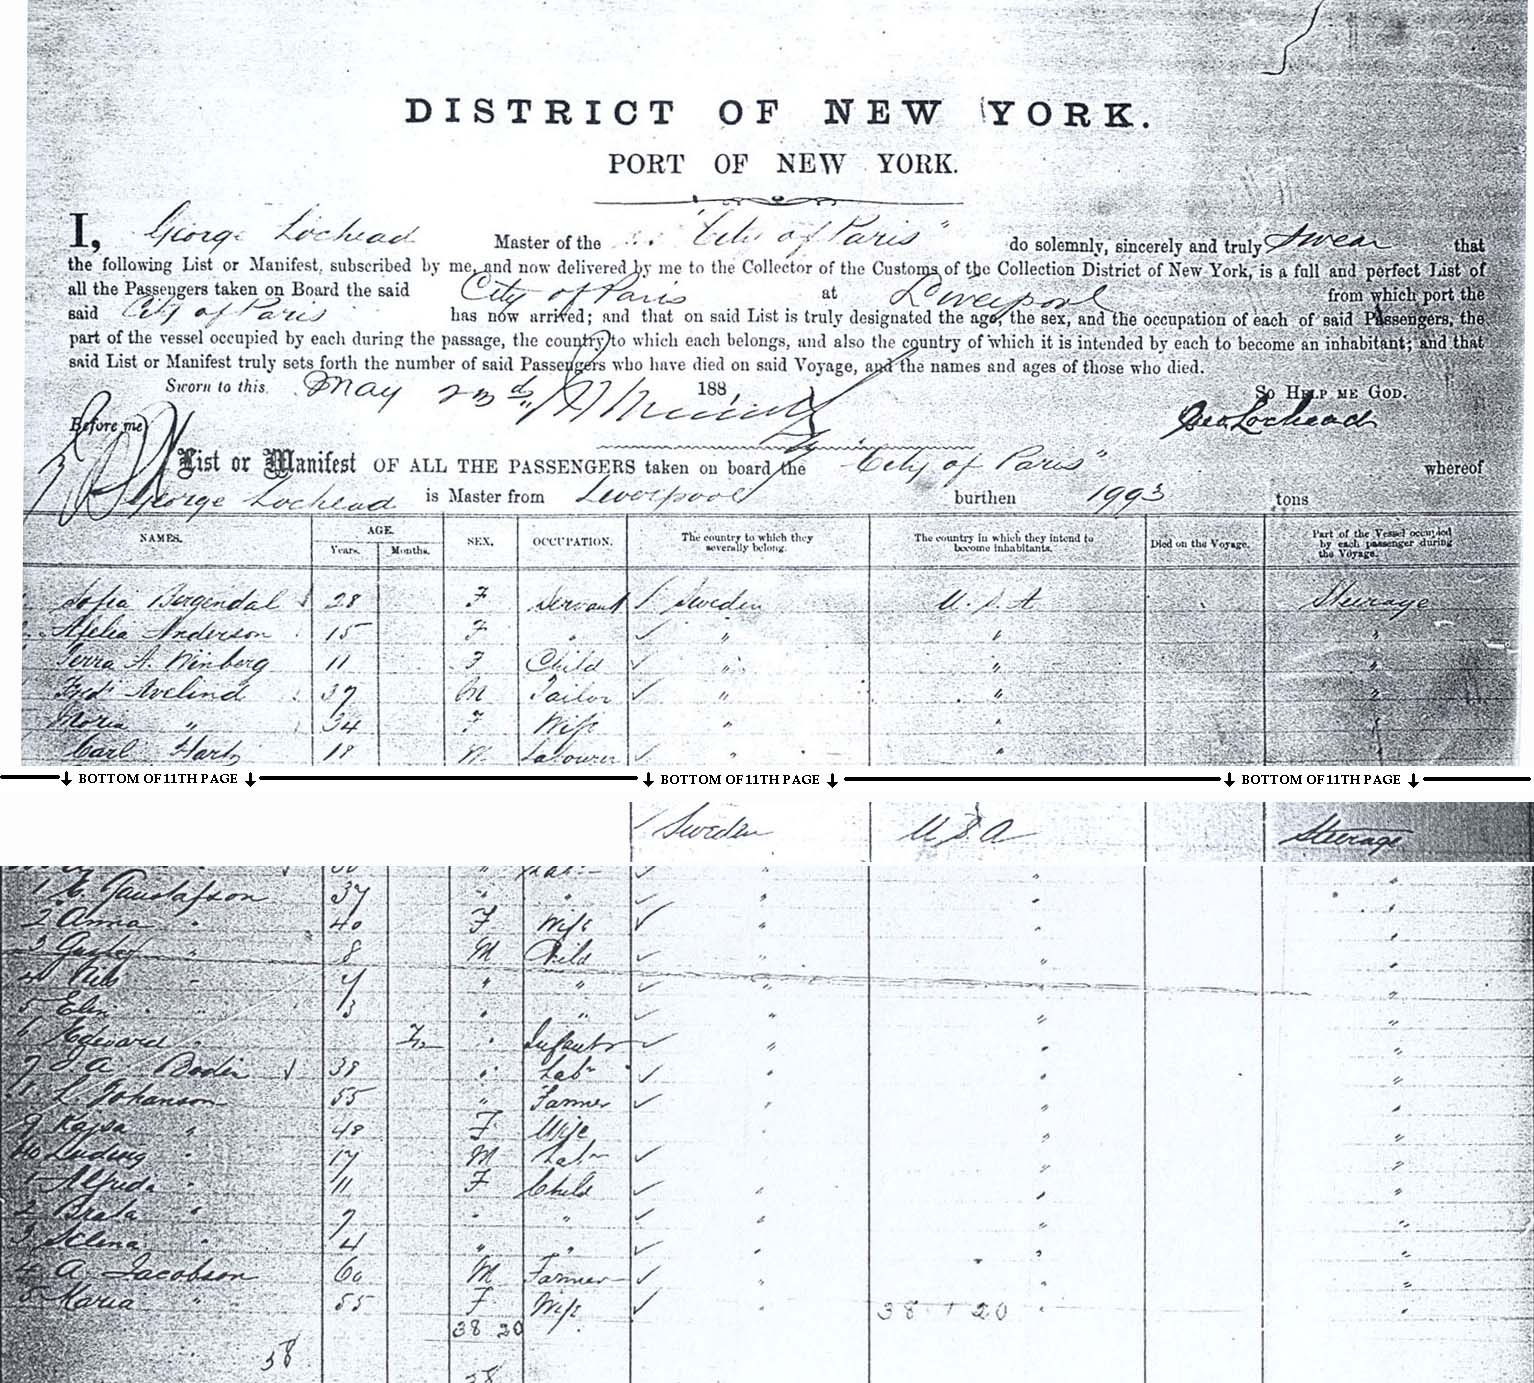 DISTRICT OF NEW YORK.
PORT OF NEW YORK.
I, George Lochead Master of the "City of Paris" do solemnly, sincerely and truly swear that
the following List or Manifest, subscribed by me, and now delivered by me to the Collector of the Customs of the Collection District of New York, is a full and perfect List of
all the Passengers taken on Board the said City of Paris at Liverpool from which port the
said City of Paris has now arrived; and that on said List is truly designated the age, the sex, and the occupation of each of said Passengers, the
part of the vessel occupied by each during the passage, the country to which each belongs, and also the country of which it is intended by each to become an inhabitant; and that
said List or Manifest truly sets forth the number of said Passengers who have died on said Voyage, and the names and ages of those who died.
Sworn to this. May 23d 188 So Help me God.
Before me Geo Lochead
List or Manifest OF ALL THE PASSENGERS taken on board the "City of Paris" whereof
George Lochead is Master from Liverpool burthen 1993 tons
NAMES. AGE. Years. Months. SEX. OCCUPATION. The country to which they severally belong. The country in which they intend to become inhabitants. Died on the Voyage. Part of the Vessel occupied by each passenger during the Voyage.
Sofia Bergendal 28 F Servant Sweden U.S.A Steerage
Anderson 15 F " " " "
A. Winberg 11 F Child " " "
Fred Avelind 37 M Tailor " " "
Maria " 34 F Wife " " "
Carl 18 M Labourer " "
BOTTOM OF 11TH PAGE BOTTOM OF 11TH PAGE BOTTOM OF 11TH PAGE
Sweden U.S.A Steerage
1 Gustafson 37 " " " " "
2 Anna " 40 F Wife " " "
3 " 8 M Child " " "
4 Nils " 7 " " " "
5 Elin " 3 " " " " "
6 Edward " Infant " " "
7 J A Bodin 38 " Labr " " "
L Johanson 55 " Farmer " " "
9 Kajsa " 48 F Wife " "
10 Ludvig " 17 M Labr " "
1 Alfrida " 11 F Child " " "
2 Beata " 7 " " " " "
3 Selena " 4 " " " " "
4 A. Jacobson 60 M Farmer " " "
5 Maria " 55 F Wife " 38 20 " "
38 20
58
58